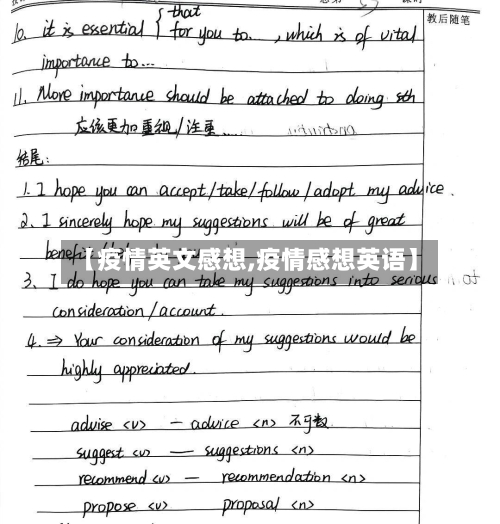 教后随笔
10. it is essential { that
for you to... , which is of vital
importance to...
11. More importance should be attached to doing sth
应该更加重视/注重....
结尾:
1. I hope you can accept/take/follow/adopt my advice.
2. I sincerely hope my suggestions will be of great
【疫情英文感想,疫情感想英语】
3. I do hope you can take my suggestions into serious
consideration/account.
4. ⇒ Your consideration of my suggestions would be
highly appreciated.
advise <v> — advice <n> 不可数
suggest <v> — suggestions <n>
recommend <v> — recommendation <n>
propose <v> proposal <n>